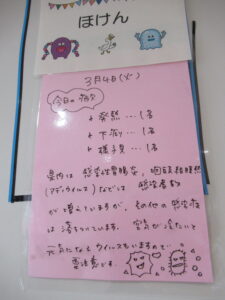 ほけん
3月4日(火)
今日の病欠
+ 発熱…1名
+ 下痢…1名
+ 様子見…1名
県内は感染性胃腸炎、咽頭結膜熱
(アデノウイルス)などは感染者数
が増えていますが、その他の感染症
は落ちついています。空気が冷たいと
元気になるウイルスもいますので
要注意です。